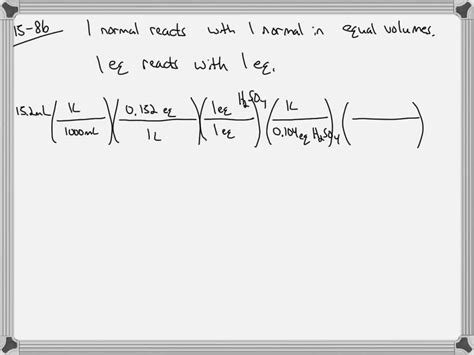 15-86 1 normal reacts with 1 normal in equal volumes.
1 eq reacts with 1 eq.
15.2mL (1L/1000mL)(0.152 eq/1L)(1 eq H₂SO₄/1 eq)(1L/0.104 eq H₂SO₄)(——)